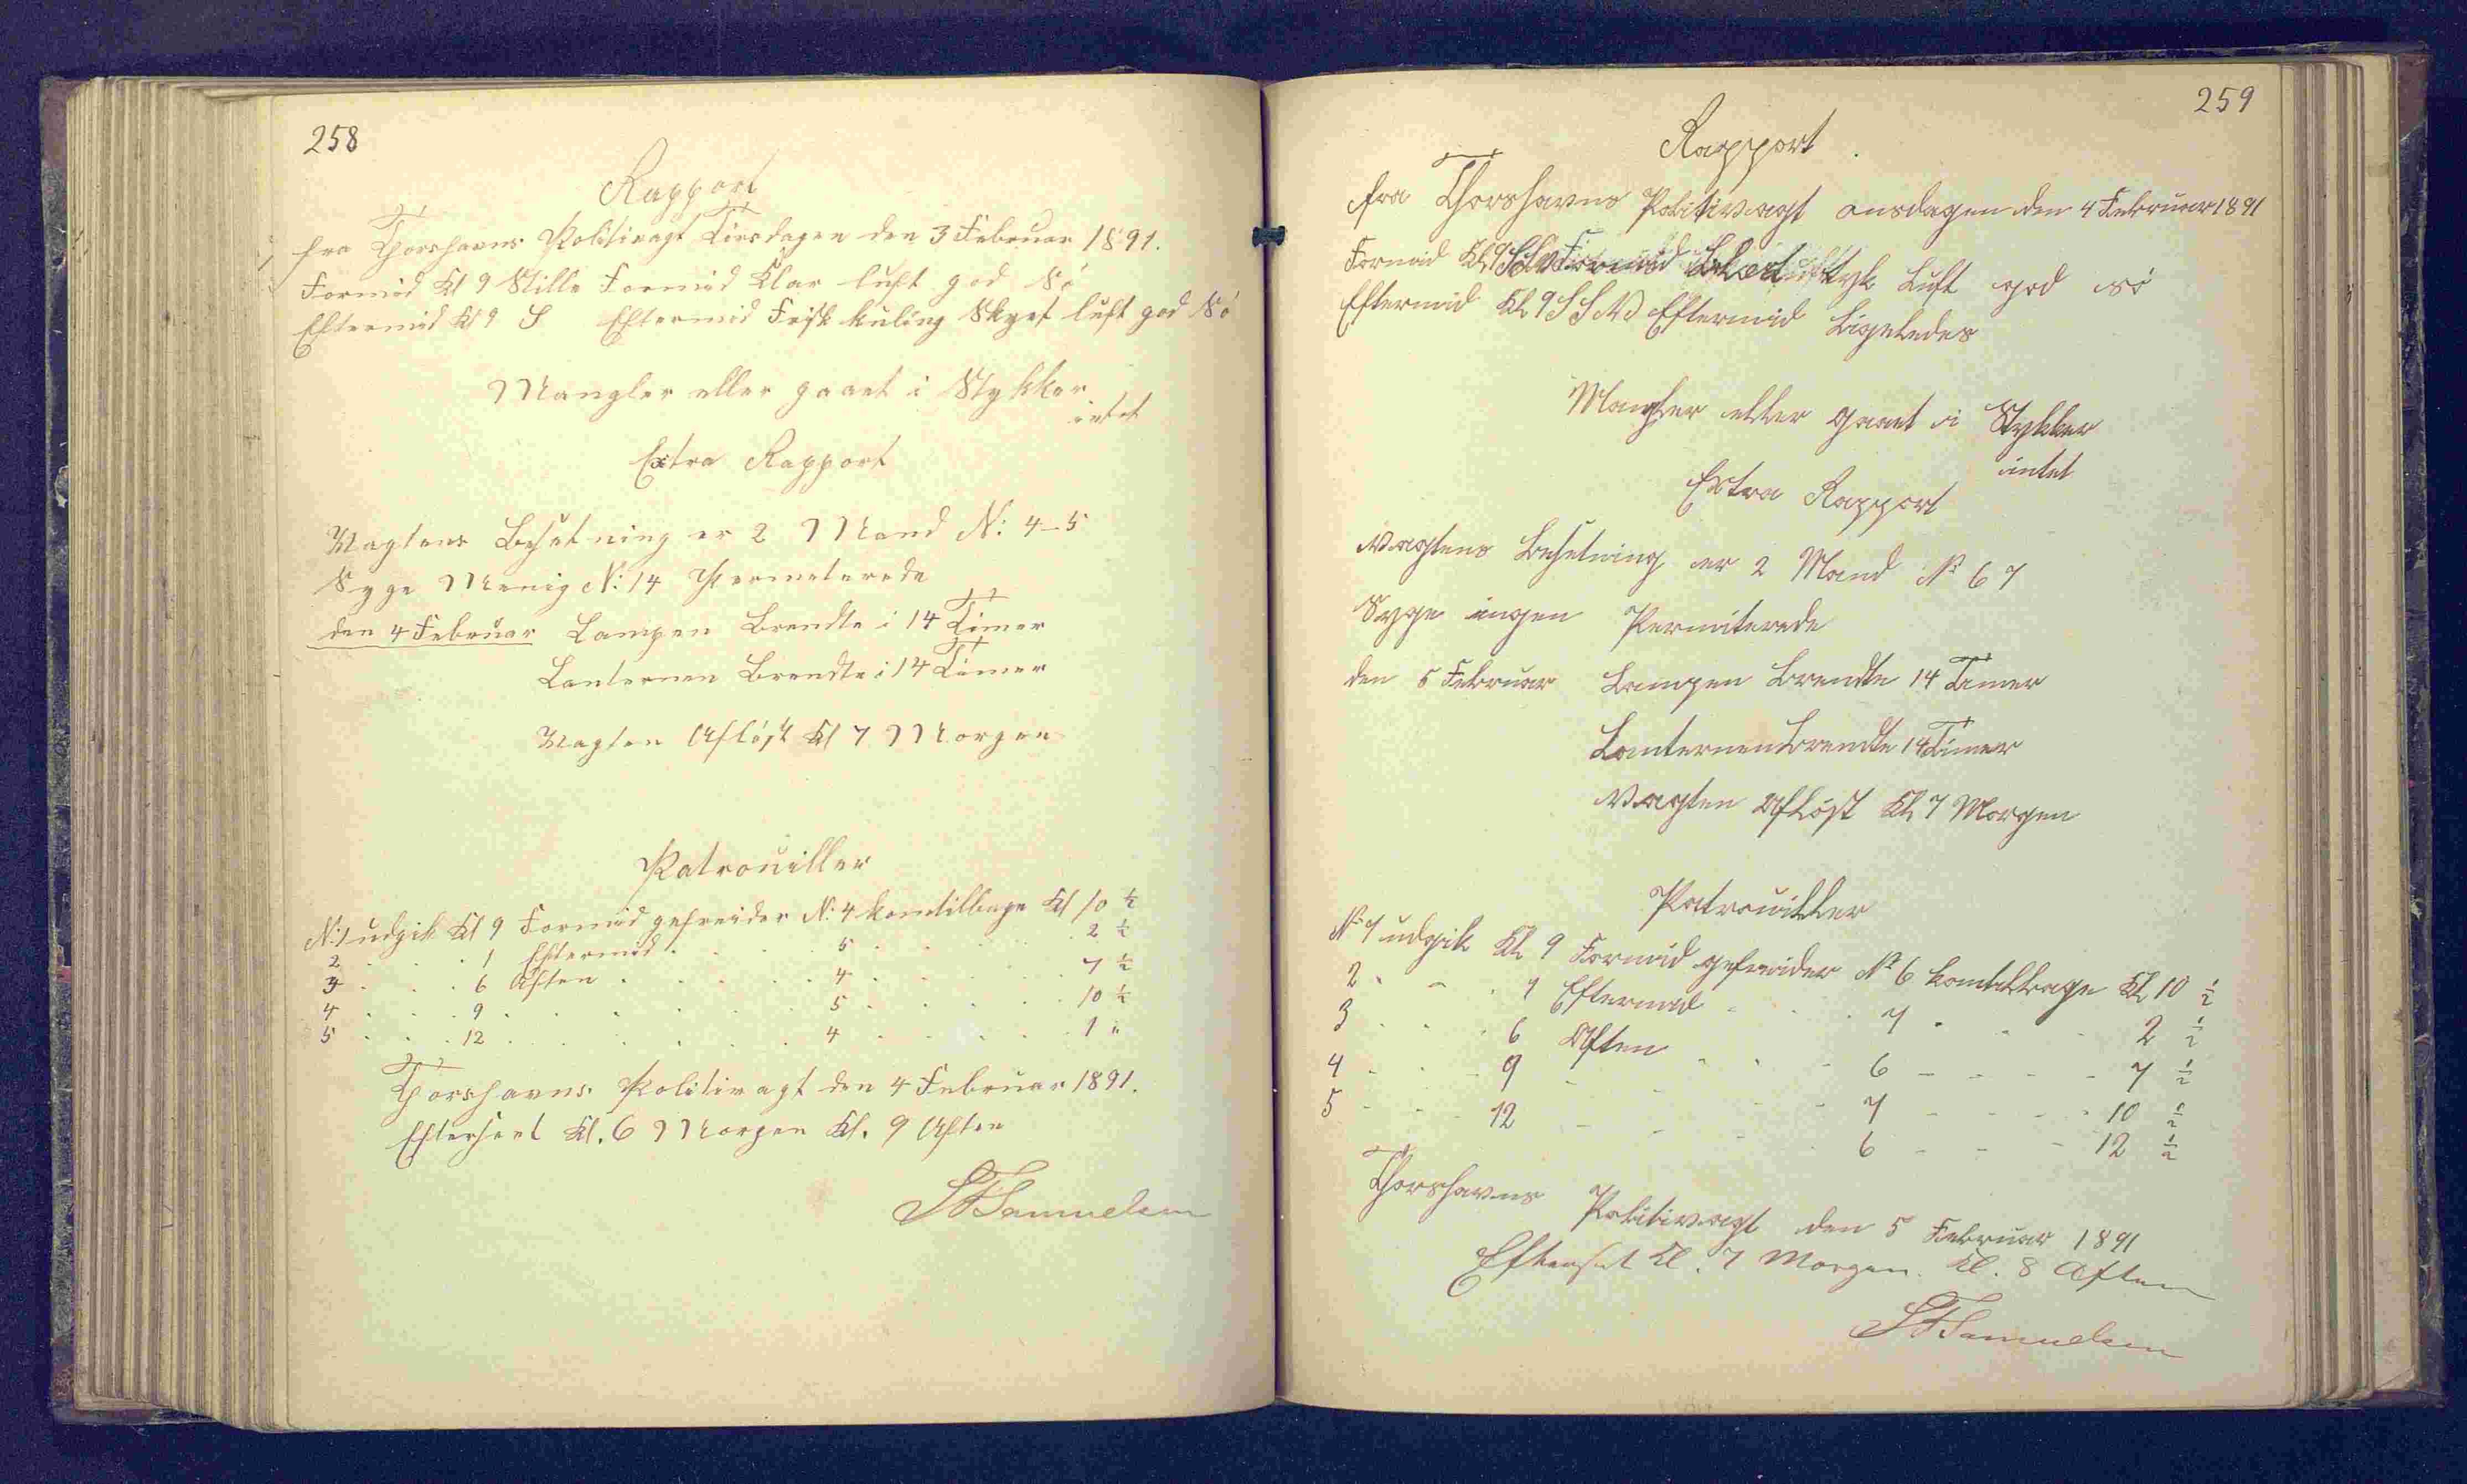 258
Rapport
fra Thorshavns Politivagt Tirsdagen den 3 Februar 1891.
Formid Kl 9 Stille Formid Klar luft god Sö
Eftermid Kl 9 S Eftermid Frisk kuling Skyet luft god Sö
Mangler eller gaaet i Stykker
intet
Extra Rapport
Vagtens Besætning er 2 Mand N: 4-5
Syge Menig N: 14 Permeterede
den 4 Februar Lampen Brendte i 14 Timer
Lanternen Brendte i 14 Timer
Vagten Afløst Kl 7 Morgen
Patrouiller
N: 1 udgik Kl 9 Formid gefreider N: 4 komtilbage Kl 10 ½
2 . . . 1 Eftermid . . . 5 . . . 2 ½
3 . . . 6 Aften . . . 4 . . . 7 ½
4 . . . 9 . . . 5 . . . 10 ½
5 . . . 12 . . . 4 . . . 1 "
Thorshavns Politivagt den 4 Februar 1891.
Efterseet Kl. 6 Morgen Kl. 9 Aften
Samuelsen
259
Rapport
fra Thorshavns Politivagt onsdagen den 4 Februar 1891
Formid Kl 9 Formid tyk Luft god sö
Eftermid Kl 9 SSV Eftermid Ligeledes
Mangler eller gaaet i Stykker
intet
Extra Rapport
Vagtens Besetning er 2 Mand No 6 7
Syge ingen Permiterede
den 5 Februar Lampen brendte 14 Timer
Lanternen brendte 14 Timer
Vagten Afløst Kl 7 Morgen
Patrouiller
No 1 udgik Kl 9 Formid gefreider No 6 komtilbage Kl 10 ½
2 . - . 1 Eftermid - . . 7 . - - 2 ½
3 . . . 6 Aften - - - 6 - - - 7 ½
4 - - - 9 - - - 7 - - - 10 ½
5 - - - 12 - - - 6 - - - 12 ½
Thorshavns Politivagt den 5 Februar 1891
Efterset Kl. 7 Morgen. Kl. 8 Aften
Samuelsen